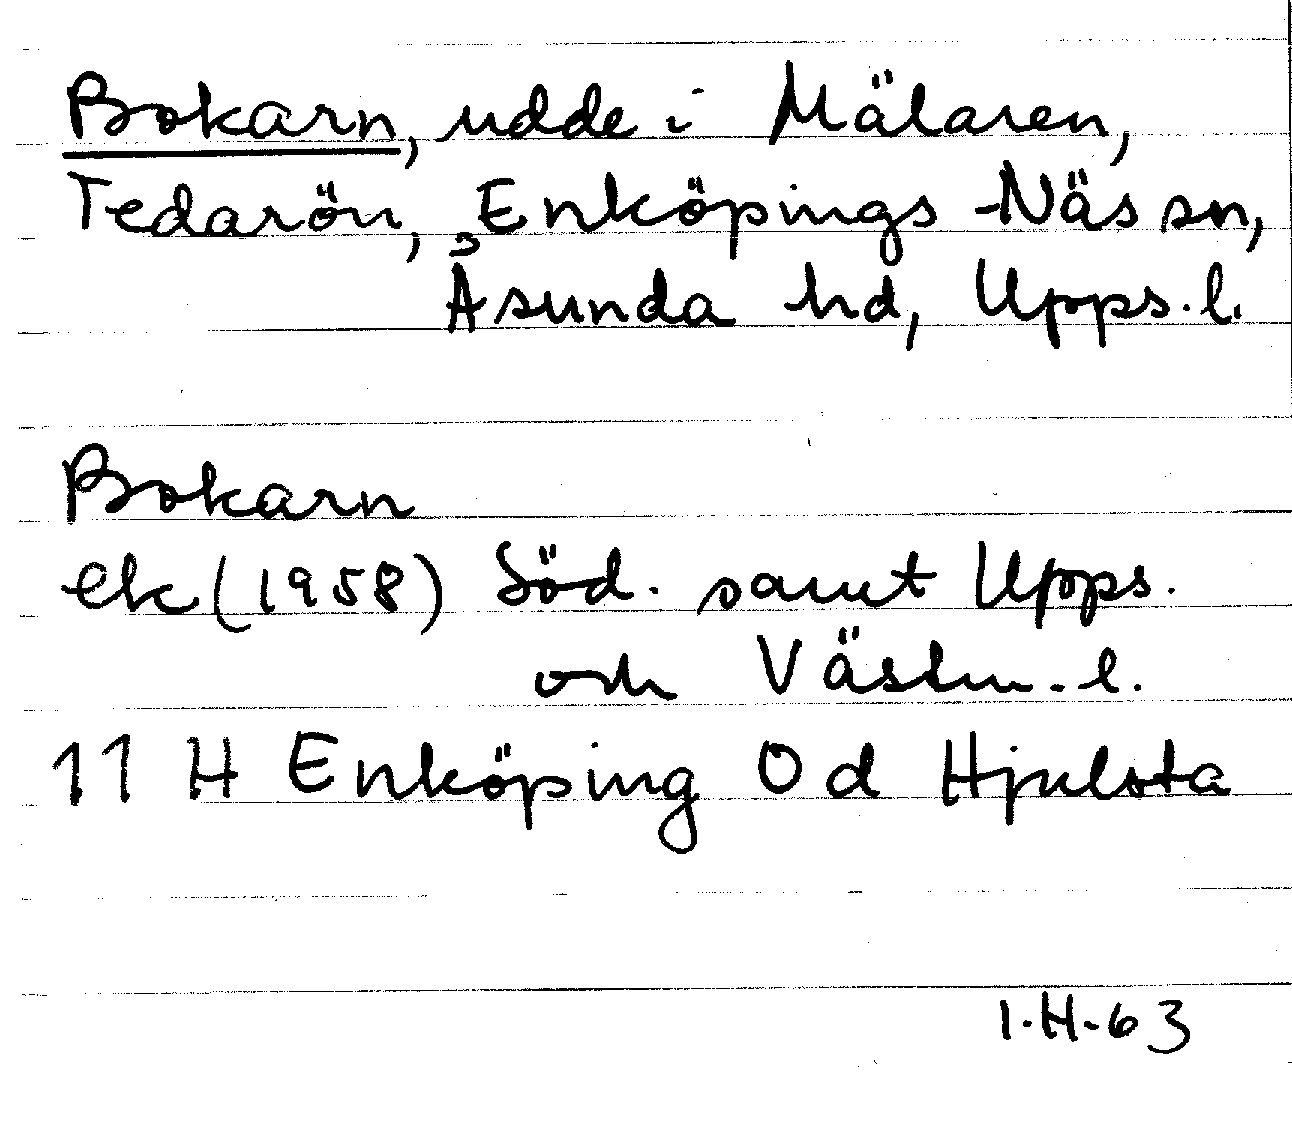 Bokarn, udde i Mälaren,
Tedarön, Enköpings-Näs sn,
Åsunda hd, Upps. l.
Bokarn
ek (1958) Söd. samt Upps.
och Västm. l.
11 H Enköping 0 d Hjulsta
I.H-63